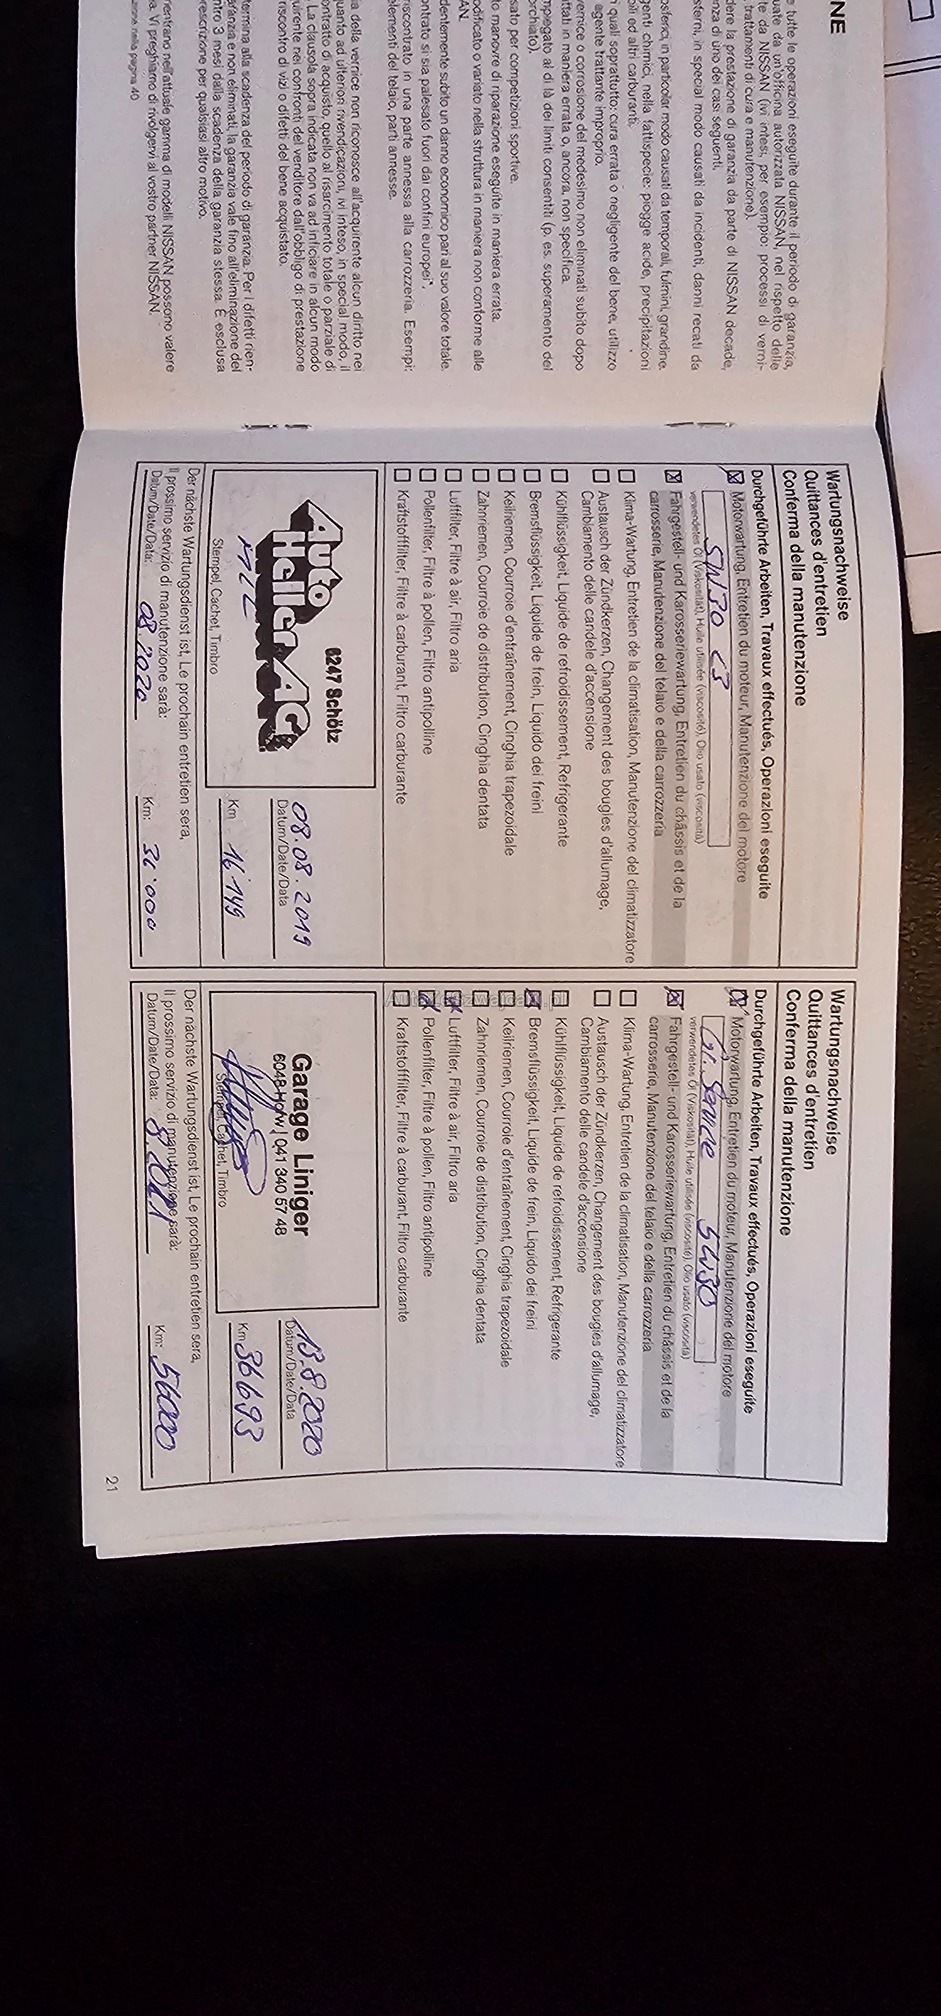 NE
e tutte le operazioni eseguite durante il periodo di garanzia,
uate da un'officina autorizzata NISSAN, nel rispetto delle
te da NISSAN (ivi intesi, per esempio: processi di verni-
, trattamenti di cura e manutenzione).
dere la prestazione di garanzia da parte di NISSAN decade,
nza di uno dei casi seguenti,
sterni, in special modo causati da incidenti, danni recati da
osferici, in particolar modo causati da temporali, fulmini, grandine.
genti chimici, nella fattispecie: piogge acide, precipitazioni
bili ed altri carburanti.
i quali soprattutto: cura errata o negligente del bene, utilizzo
agente trattante improprio.
vernice o corrosione del medesimo non eliminati subito dopo
ttati in maniera errata o, ancora, non specifica.
mpiegato al di là dei limiti consentiti (p. es. superamento del
orchiato).
sato per competizioni sportive.
to manovre di riparazione eseguite in maniera errata.
odificato o variato nella struttura in maniera non conforme alle
AN.
dentemente subito un danno economico pari al suo valore totale.
ontrato si sia palesato fuori dai confini europei*.
riscontrato in una parte annessa alla carrozzeria. Esempi:
elementi del telaio, parti annesse.
ia della vernice non riconosce all'acquirente alcun diritto nei
quanto ad ulteriori rivendicazioni, ivi inteso, in special modo, il
ontratto di acquisto, quello al risarcimento totale o parziale di
. La clausola sopra indicata non va ad inficiare in alcun modo
uirente nei confronti del venditore dall'obbligo di prestazione
riscontro di vizi o difetti del bene acquistato.
termina alla scadenza del periodo di garanzia. Per i difetti rien-
aranzia e non eliminati, la garanzia vale fino all'eliminazione del
ntro 3 mesi dalla scadenza della garanzia stessa. È esclusa
rescrizione per qualsiasi altro motivo.
ientrano nell'attuale gamma di modelli NISSAN possono valere
a. Vi preghiamo di rivolgervi al vostro partner NISSAN.
nella pagina 40
Wartungsnachweise
Quittances d'entretien
Conferma della manutenzione
Durchgeführte Arbeiten, Travaux effectués, Operazioni eseguite
Motorwartung, Entretien du moteur, Manutenzione del motore
5W30 C3
verwendetes Öl (Viskosität), Huile utilisée (viscosité), Olio usato (viscosità)
Fahrgestell- und Karosseriewartung, Entretien du châssis et de la
carrosserie, Manutenzione del telaio e della carrozzeria
Klima-Wartung, Entretien de la climatisation, Manutenzione del climatizzatore
Austausch der Zündkerzen, Changement des bougies d'allumage,
Cambiamento delle candele d'accensione
Kühlflüssigkeit, Liquide de refroidissement, Refrigerante
Bremsflüssigkeit, Liquide de frein, Liquido dei freini
Keilriemen, Courroie d'entraînement, Cinghia trapezoidale
Zahnriemen, Courroie de distribution, Cinghia dentata
Luftfilter, Filtre à air, Filtro aria
Pollenfilter, Filtre à pollen, Filtro antipolline
Kraftstofffilter, Filtre à carburant, Filtro carburante
6247 Schötz
Auto
Heller AG
Stempel, Cachet, Timbro
08.08.2019
Datum/Date/Data
Km 16'149
Der nächste Wartungsdienst ist, Le prochain entretien sera,
Il prossimo servizio di manutenzione sarà:
Datum/Date/Data: 08.2020 Km: 36'000
Wartungsnachweise
Quittances d'entretien
Conferma della manutenzione
Durchgeführte Arbeiten, Travaux effectués, Operazioni eseguite
Motorwartung, Entretien du moteur, Manutenzione del motore
Service 5W30
verwendetes Öl (Viskosität), Huile utilisée (viscosité), Olio usato (viscosità)
Fahrgestell- und Karosseriewartung, Entretien du châssis et de la
carrosserie, Manutenzione del telaio e della carrozzeria
Klima-Wartung, Entretien de la climatisation, Manutenzione del climatizzatore
Austausch der Zündkerzen, Changement des bougies d'allumage,
Cambiamento delle candele d'accensione
Kühlflüssigkeit, Liquide de refroidissement, Refrigerante
Bremsflüssigkeit, Liquide de frein, Liquido dei freini
Keilriemen, Courroie d'entraînement, Cinghia trapezoidale
Zahnriemen, Courroie de distribution, Cinghia dentata
Luftfilter, Filtre à air, Filtro aria
Pollenfilter, Filtre à pollen, Filtro antipolline
Kraftstofffilter, Filtre à carburant, Filtro carburante
Garage Liniger
6048 Horw | 041 340 57 48
Stempel, Cachet, Timbro
13.8.2020
Datum/Date/Data
Km 36693
Der nächste Wartungsdienst ist, Le prochain entretien sera,
Il prossimo servizio di manutenzione sarà:
Datum/Date/Data: 8.2021 Km: 56000
21